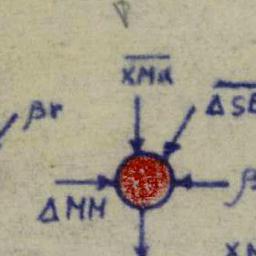 XMd
βr
ΔSE
ΔMM
β
XM